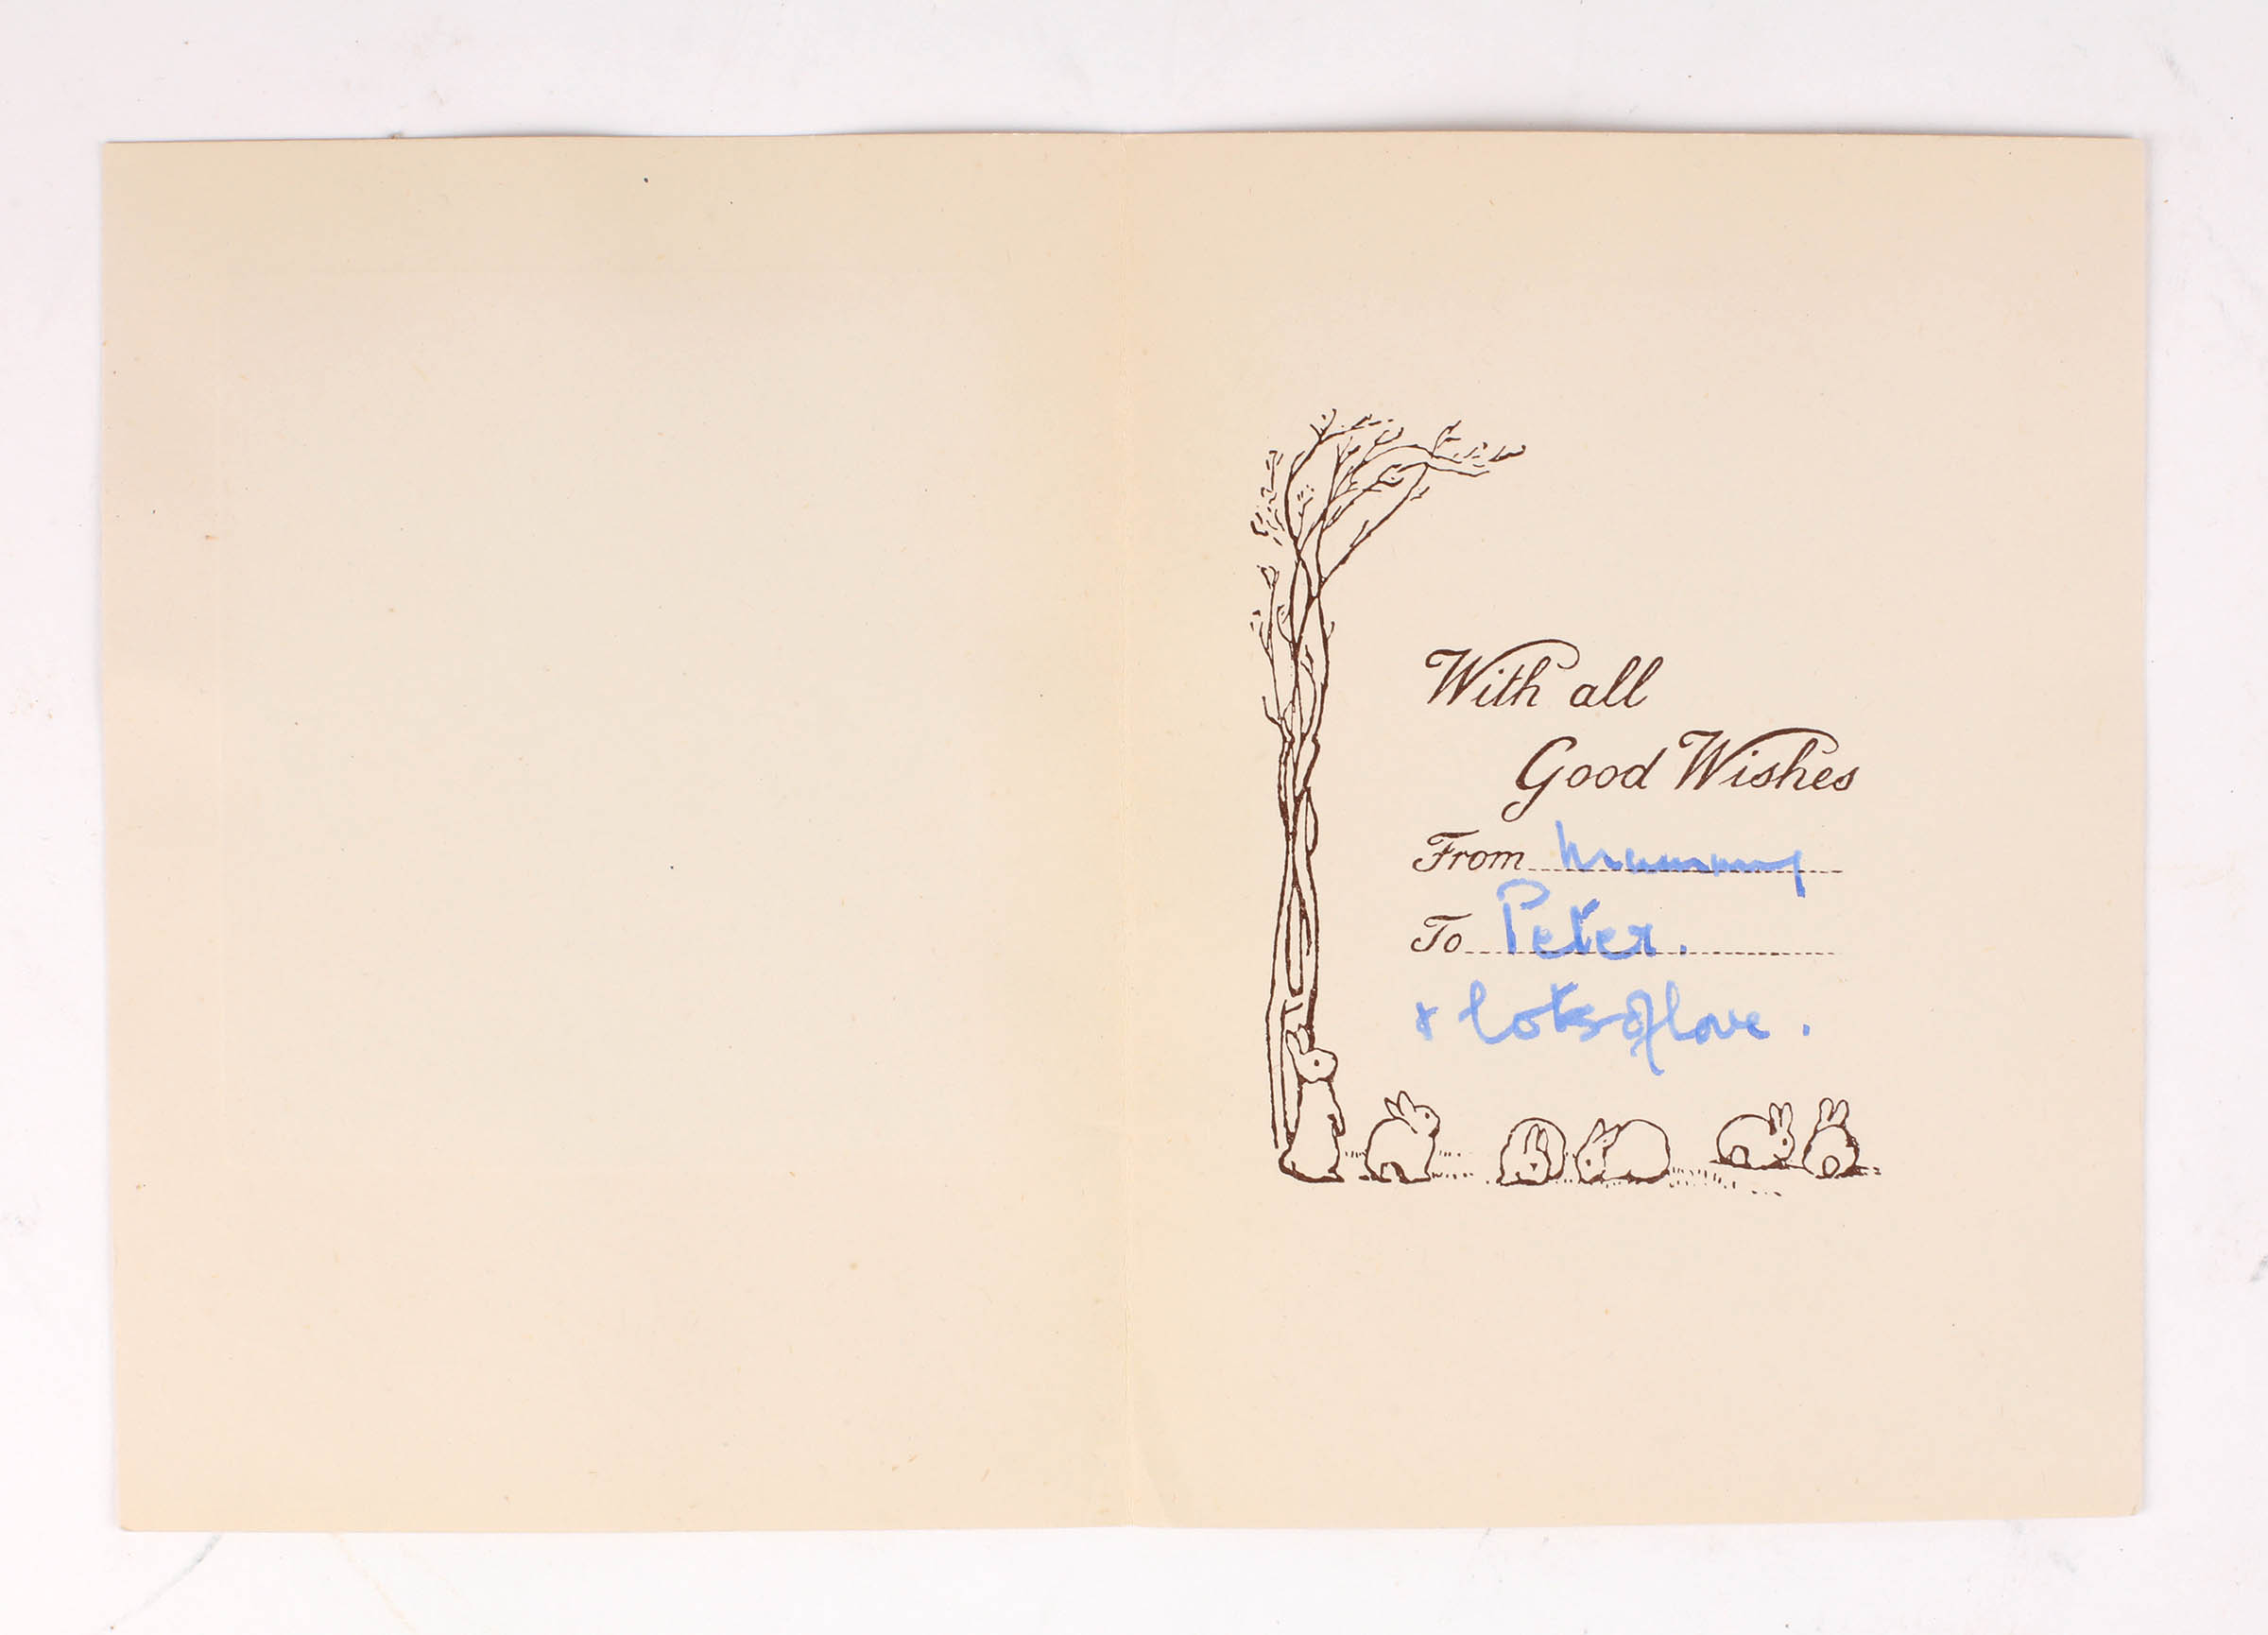 With all
Good Wishes
From Mummy
To Peter.
& lots of love.